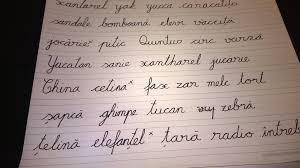 xantarel yak yucca caracatița
sandale bomboană elevi văcuță
jucărie puțic Quintus circ varză
Yucatan sanie xantharel jucărie
China cetină* fax zar melc tort
șapcă ghimpe tucan zebră
țelină elefănțel* țară radio întreb